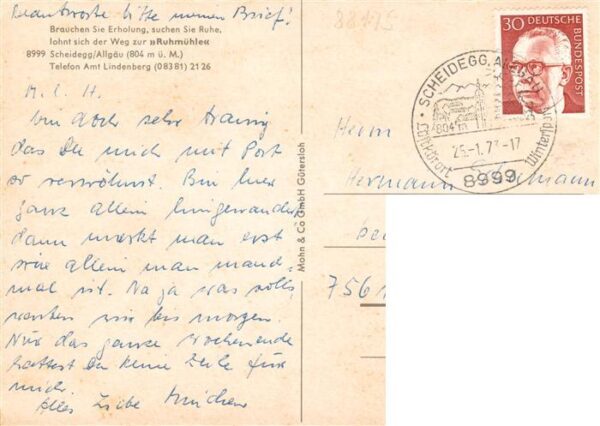 Beantworte bitte meinen Brief!
Brauchen Sie Erholung, suchen Sie Ruhe,
lohnt sich der Weg zur »Ruhmühle«
8999 Scheidegg/Allgäu (804 m ü. M.)
Telefon Amt Lindenberg (0 83 81) 21 26
M. l. H.
bin doch sehr traurig
das Du mich mit Post
so verwöhnst. Bin hier
ganz allein hingewandert
dann merkt man erst
wie allein man manch-
mal ist. Na ja was solls
warten wir bis morgen.
Nur das ganze Wochenende
hattest Du keine Zeile für
mich.
Alles Liebe
Mohn & Co GmbH Gütersloh
30
DEUTSCHE
BUNDESPOST
SCHEIDEGG, ALLGÄU
804 m
-1.7
-17
Luftkurort
Wintersport
8999
Herrn
Hermann
bei
756